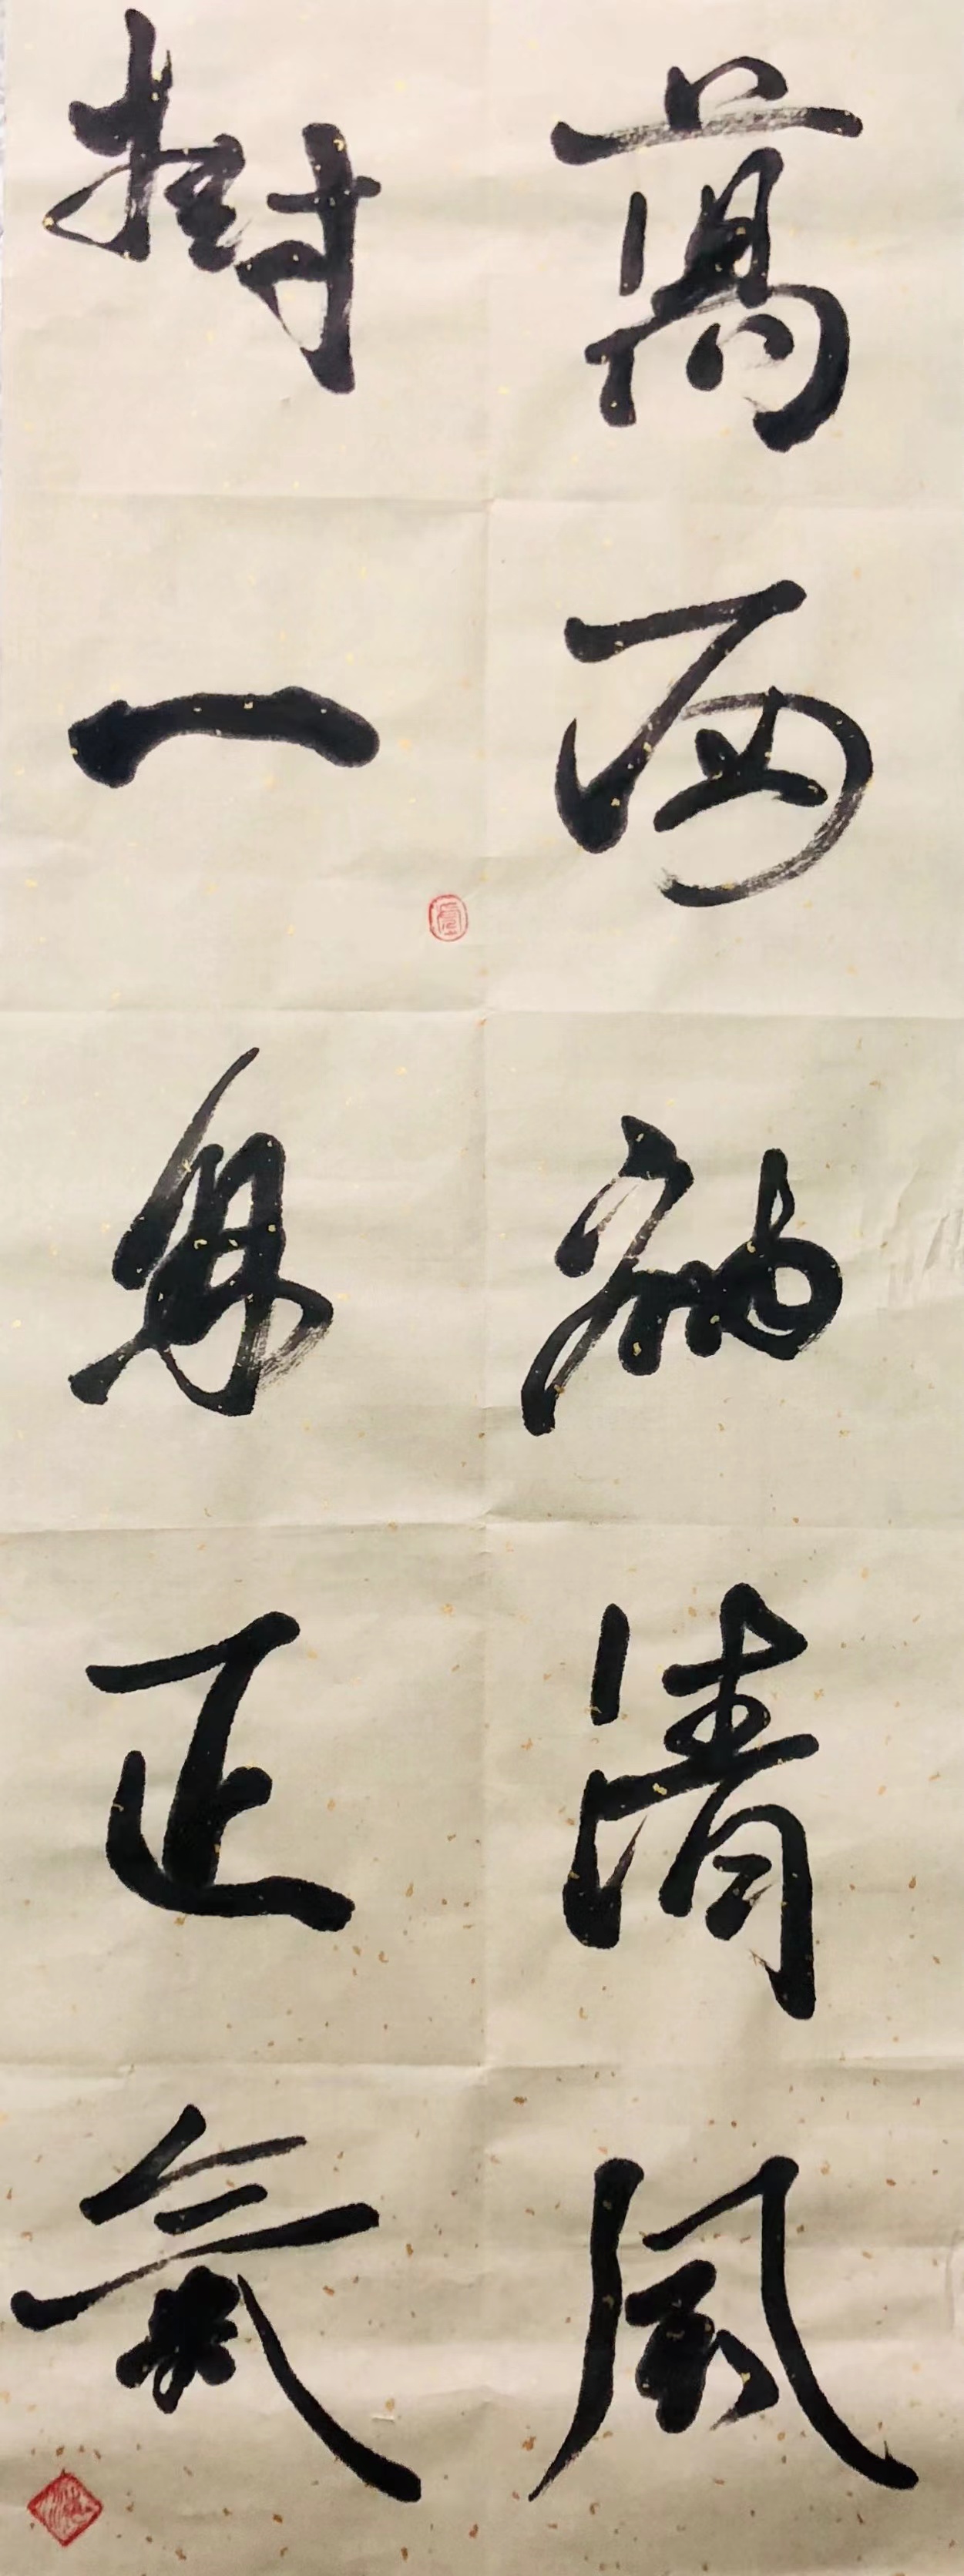 萬両袖清風
樹一身正氣